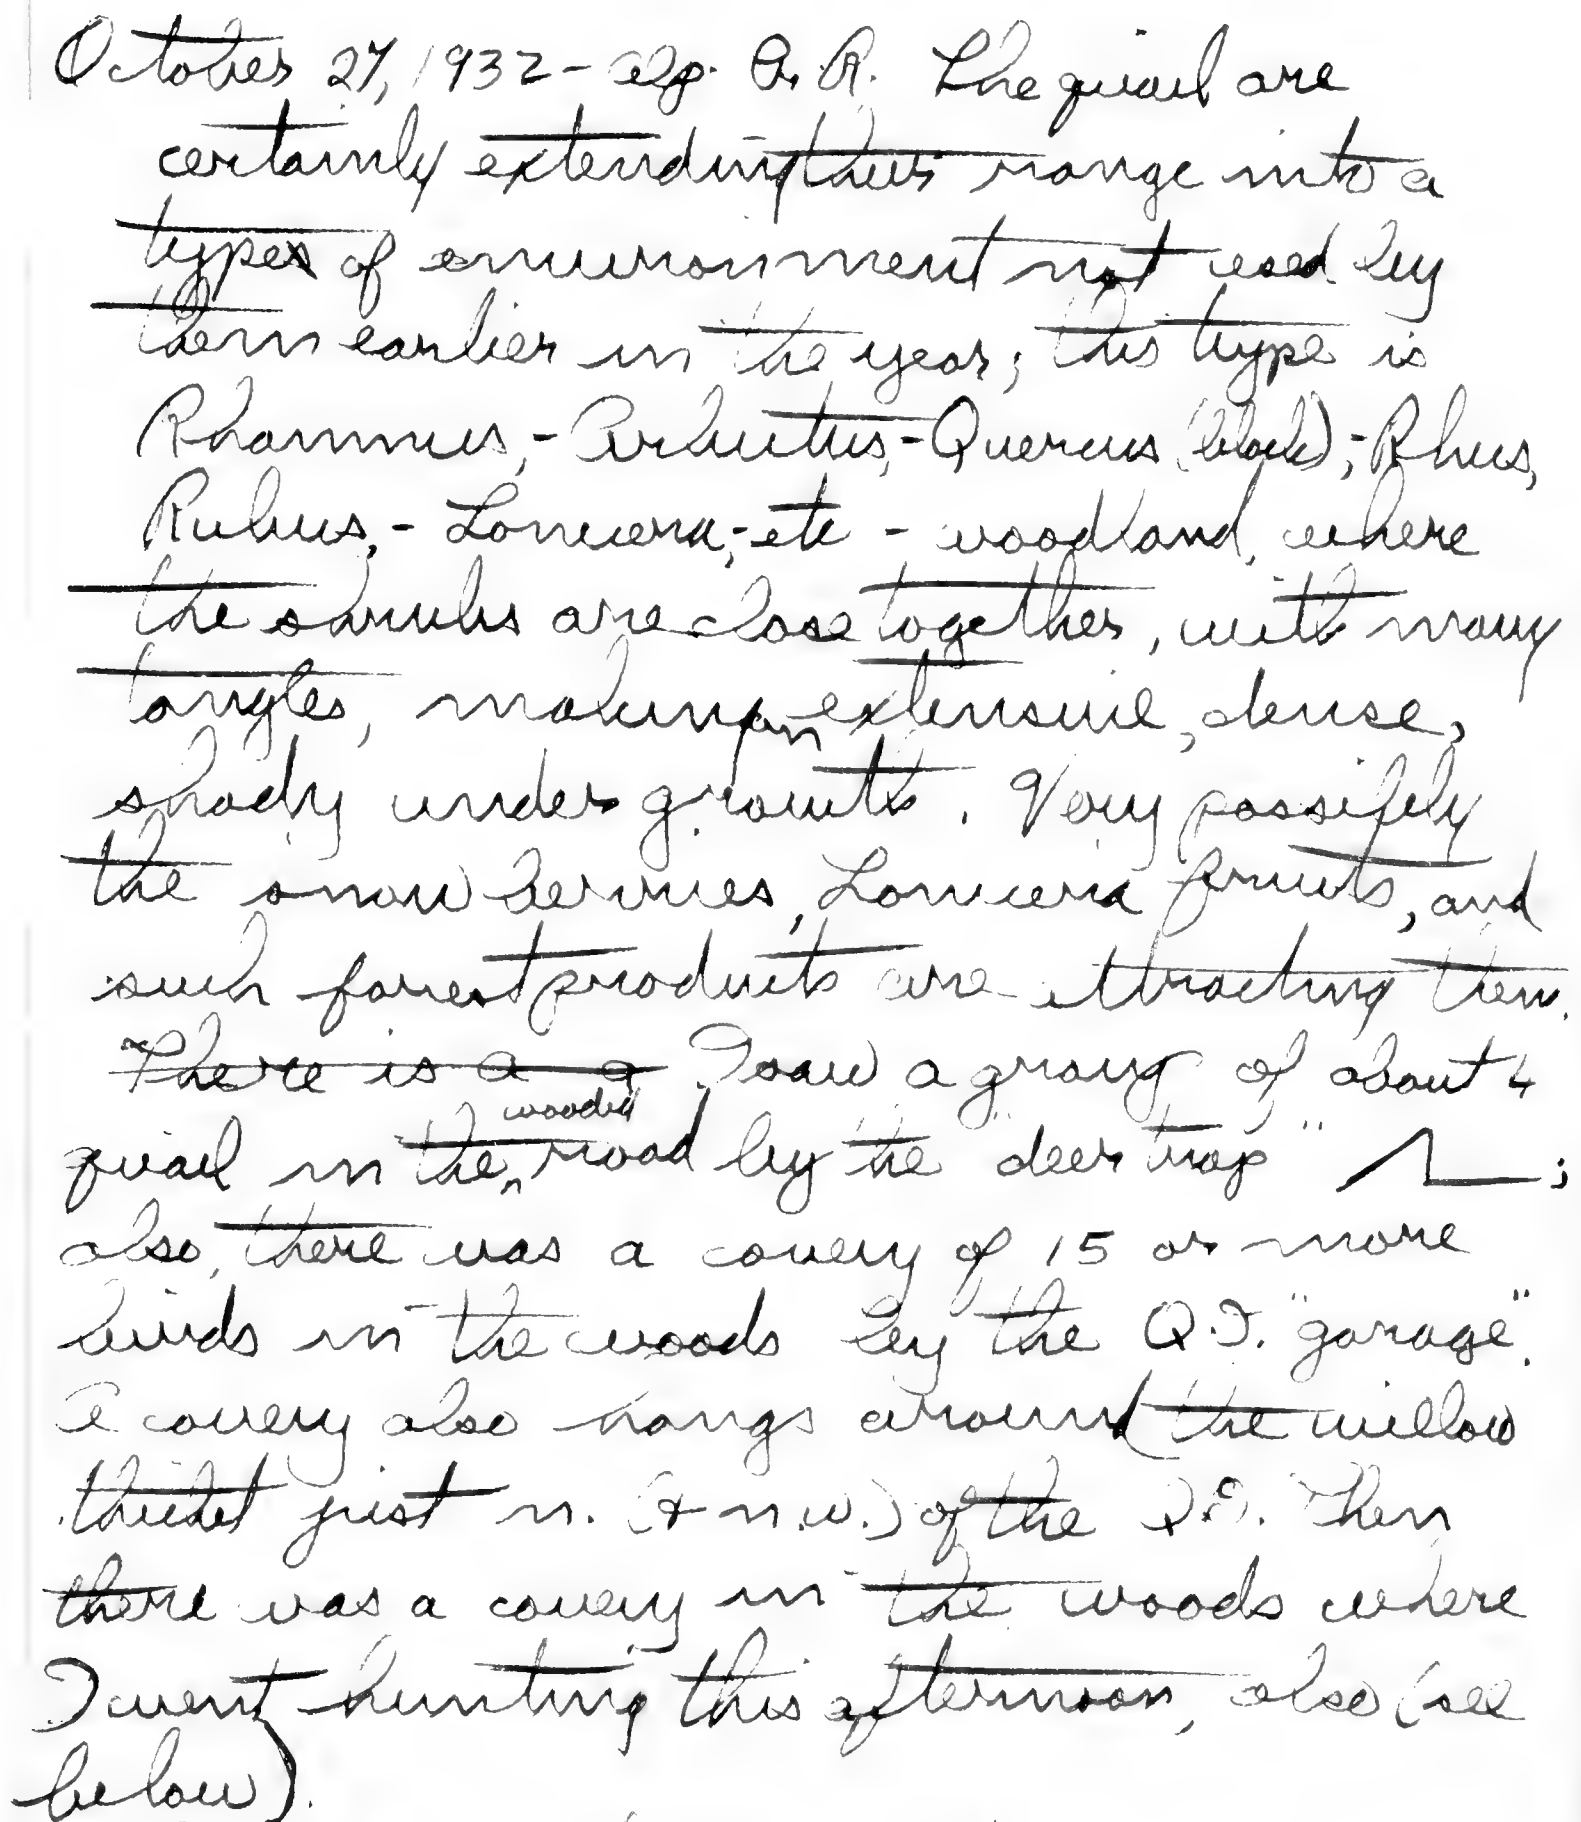 October 27, 1932 - Alp. A. R. The quail are
certainly extending their range into a
type of environment not used by
them earlier in the year; this type is
Rhamnus,- Arbutus,- Quercus (black),- Rhus,
Rubus,- Lonicera,- etc - woodland, where
the shrubs are close together, with many
tangles, making an extensive, dense,
shady undergrowth. Very possibly
the snowberries, Lonicera fruits, and
such forest products are attracting them.
There is a a I saw a group of about 4
quail in the wooded road by the "deer trap" ;
also, there was a covey of 15 or more
birds in the woods by the Q.T. "garage".
A covey also hangs around the willow
thicket just n. (& n.w.) of the Then
there was a covey in the woods where
I went hunting this afternoon, also (see
below).